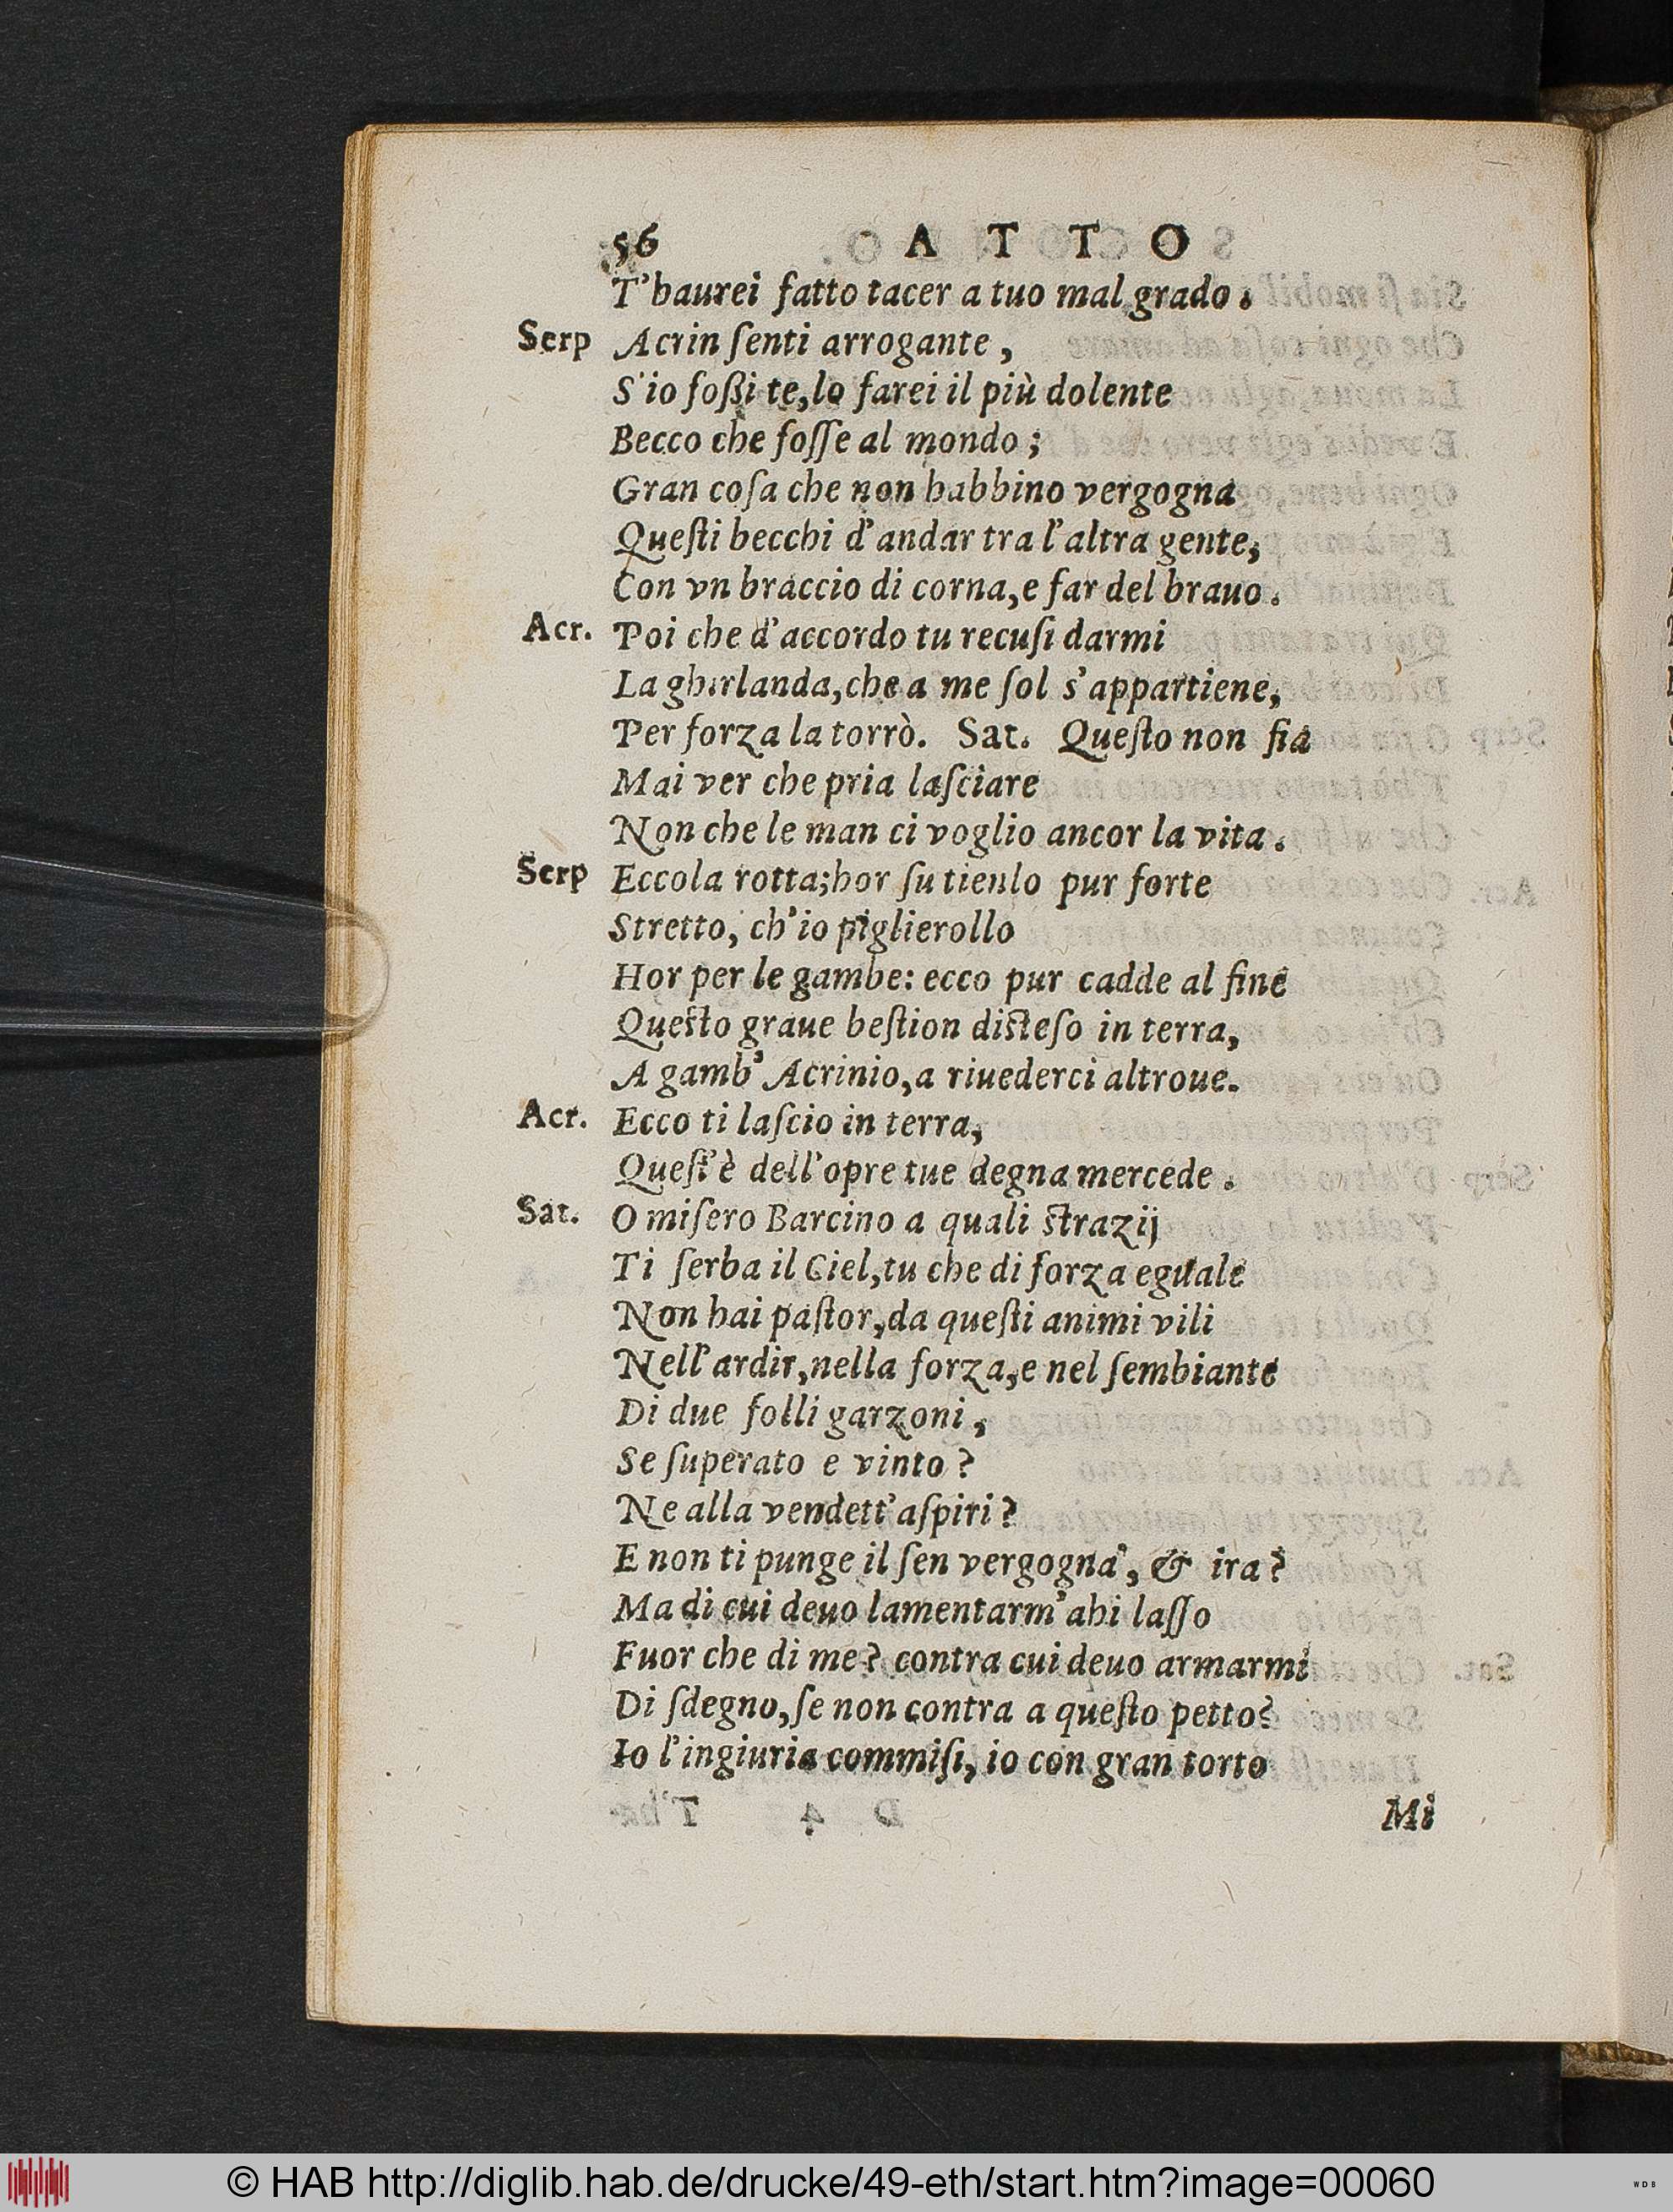 56 ATTO
T'haurei fatto tacer a tuo mal grado.
Serp Acrin ſenti arrogante,
S'io foßi te, lo farei il più dolente
Becco che foſſe al mondo;
Gran coſa che non habbino vergogna
Queſti becchi d'andar tra l'altra gente,
Con vn braccio di corna, e far del brauo.
Acr. Poi che d'accordo tu recuſi darmi
La ghirlanda, che a me ſol s'appartiene,
Per forza la torrò. Sat. Queſto non fia
Mai ver che pria laſciare
Non che le man ci voglio ancor la vita.
Serp Eccola rotta; hor ſu tienlo pur forte
Stretto, ch'io piglierollo
Hor per le gambe: ecco pur cadde al fine
Queſto graue beſtion diſteſo in terra,
A gamb' Acrinio, a riuederci altroue.
Acr. Ecco ti laſcio in terra,
Queſt'è dell'opre tue degna mercede.
Sat. O miſero Barcino a quali ſtrazij
Ti ſerba il Ciel, tu che di forza eguale
Non hai paſtor, da queſti animi vili
Nell'ardir, nella forza, e nel ſembiante
Di due folli garzoni,
Se ſuperato e vinto?
Ne alla vendett'aſpiri?
E non ti punge il ſen vergogna, & ira?
Ma di cui deuo lamentarm'ahi laſſo
Fuor che di me? contra cui deuo armarmi
Di ſdegno, ſe non contra a queſto petto?
Io l'ingiuria commiſi, io con gran torto
Mi
© HAB http://diglib.hab.de/drucke/49-eth/start.htm?image=00060
WDB